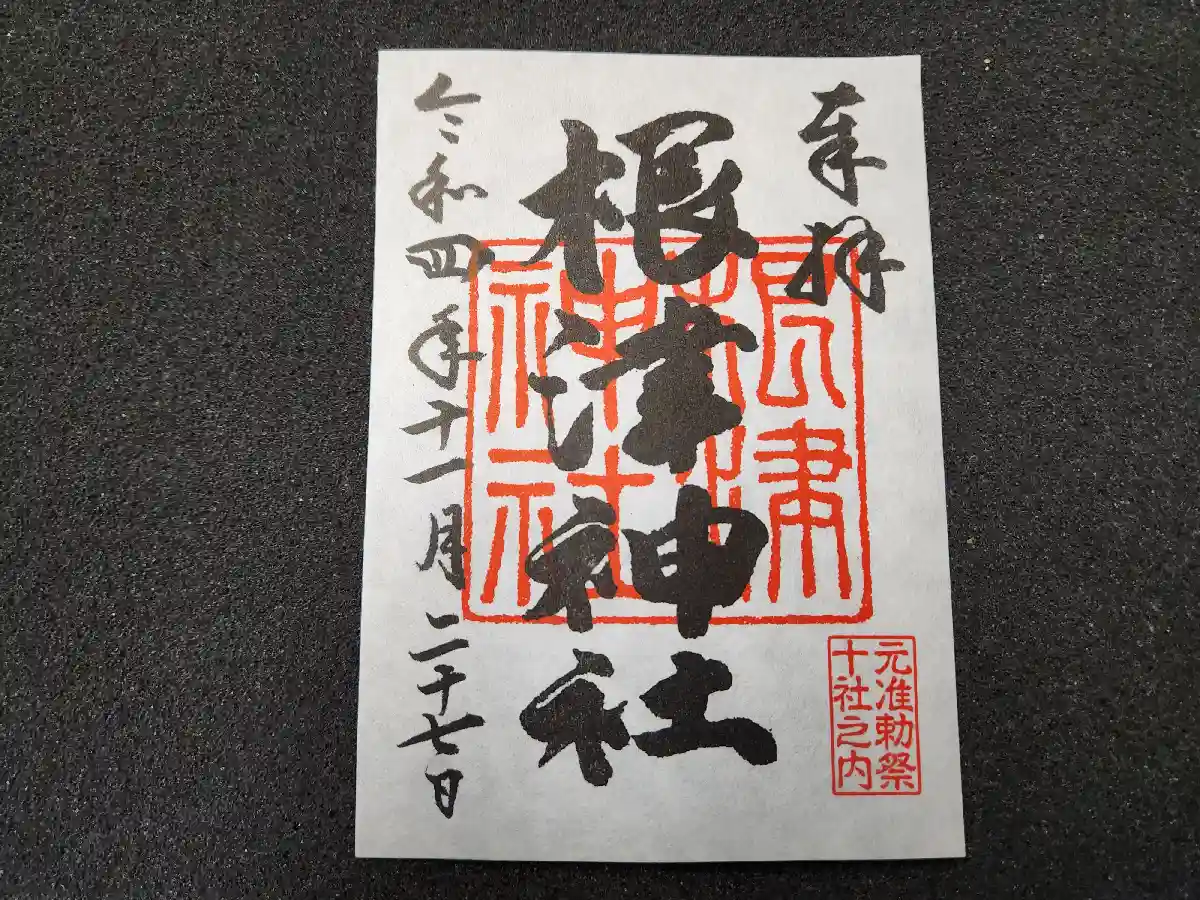 奉拝
根津
神社
根津神社
元准勅祭
十社之内
令和四年十一月二十七日